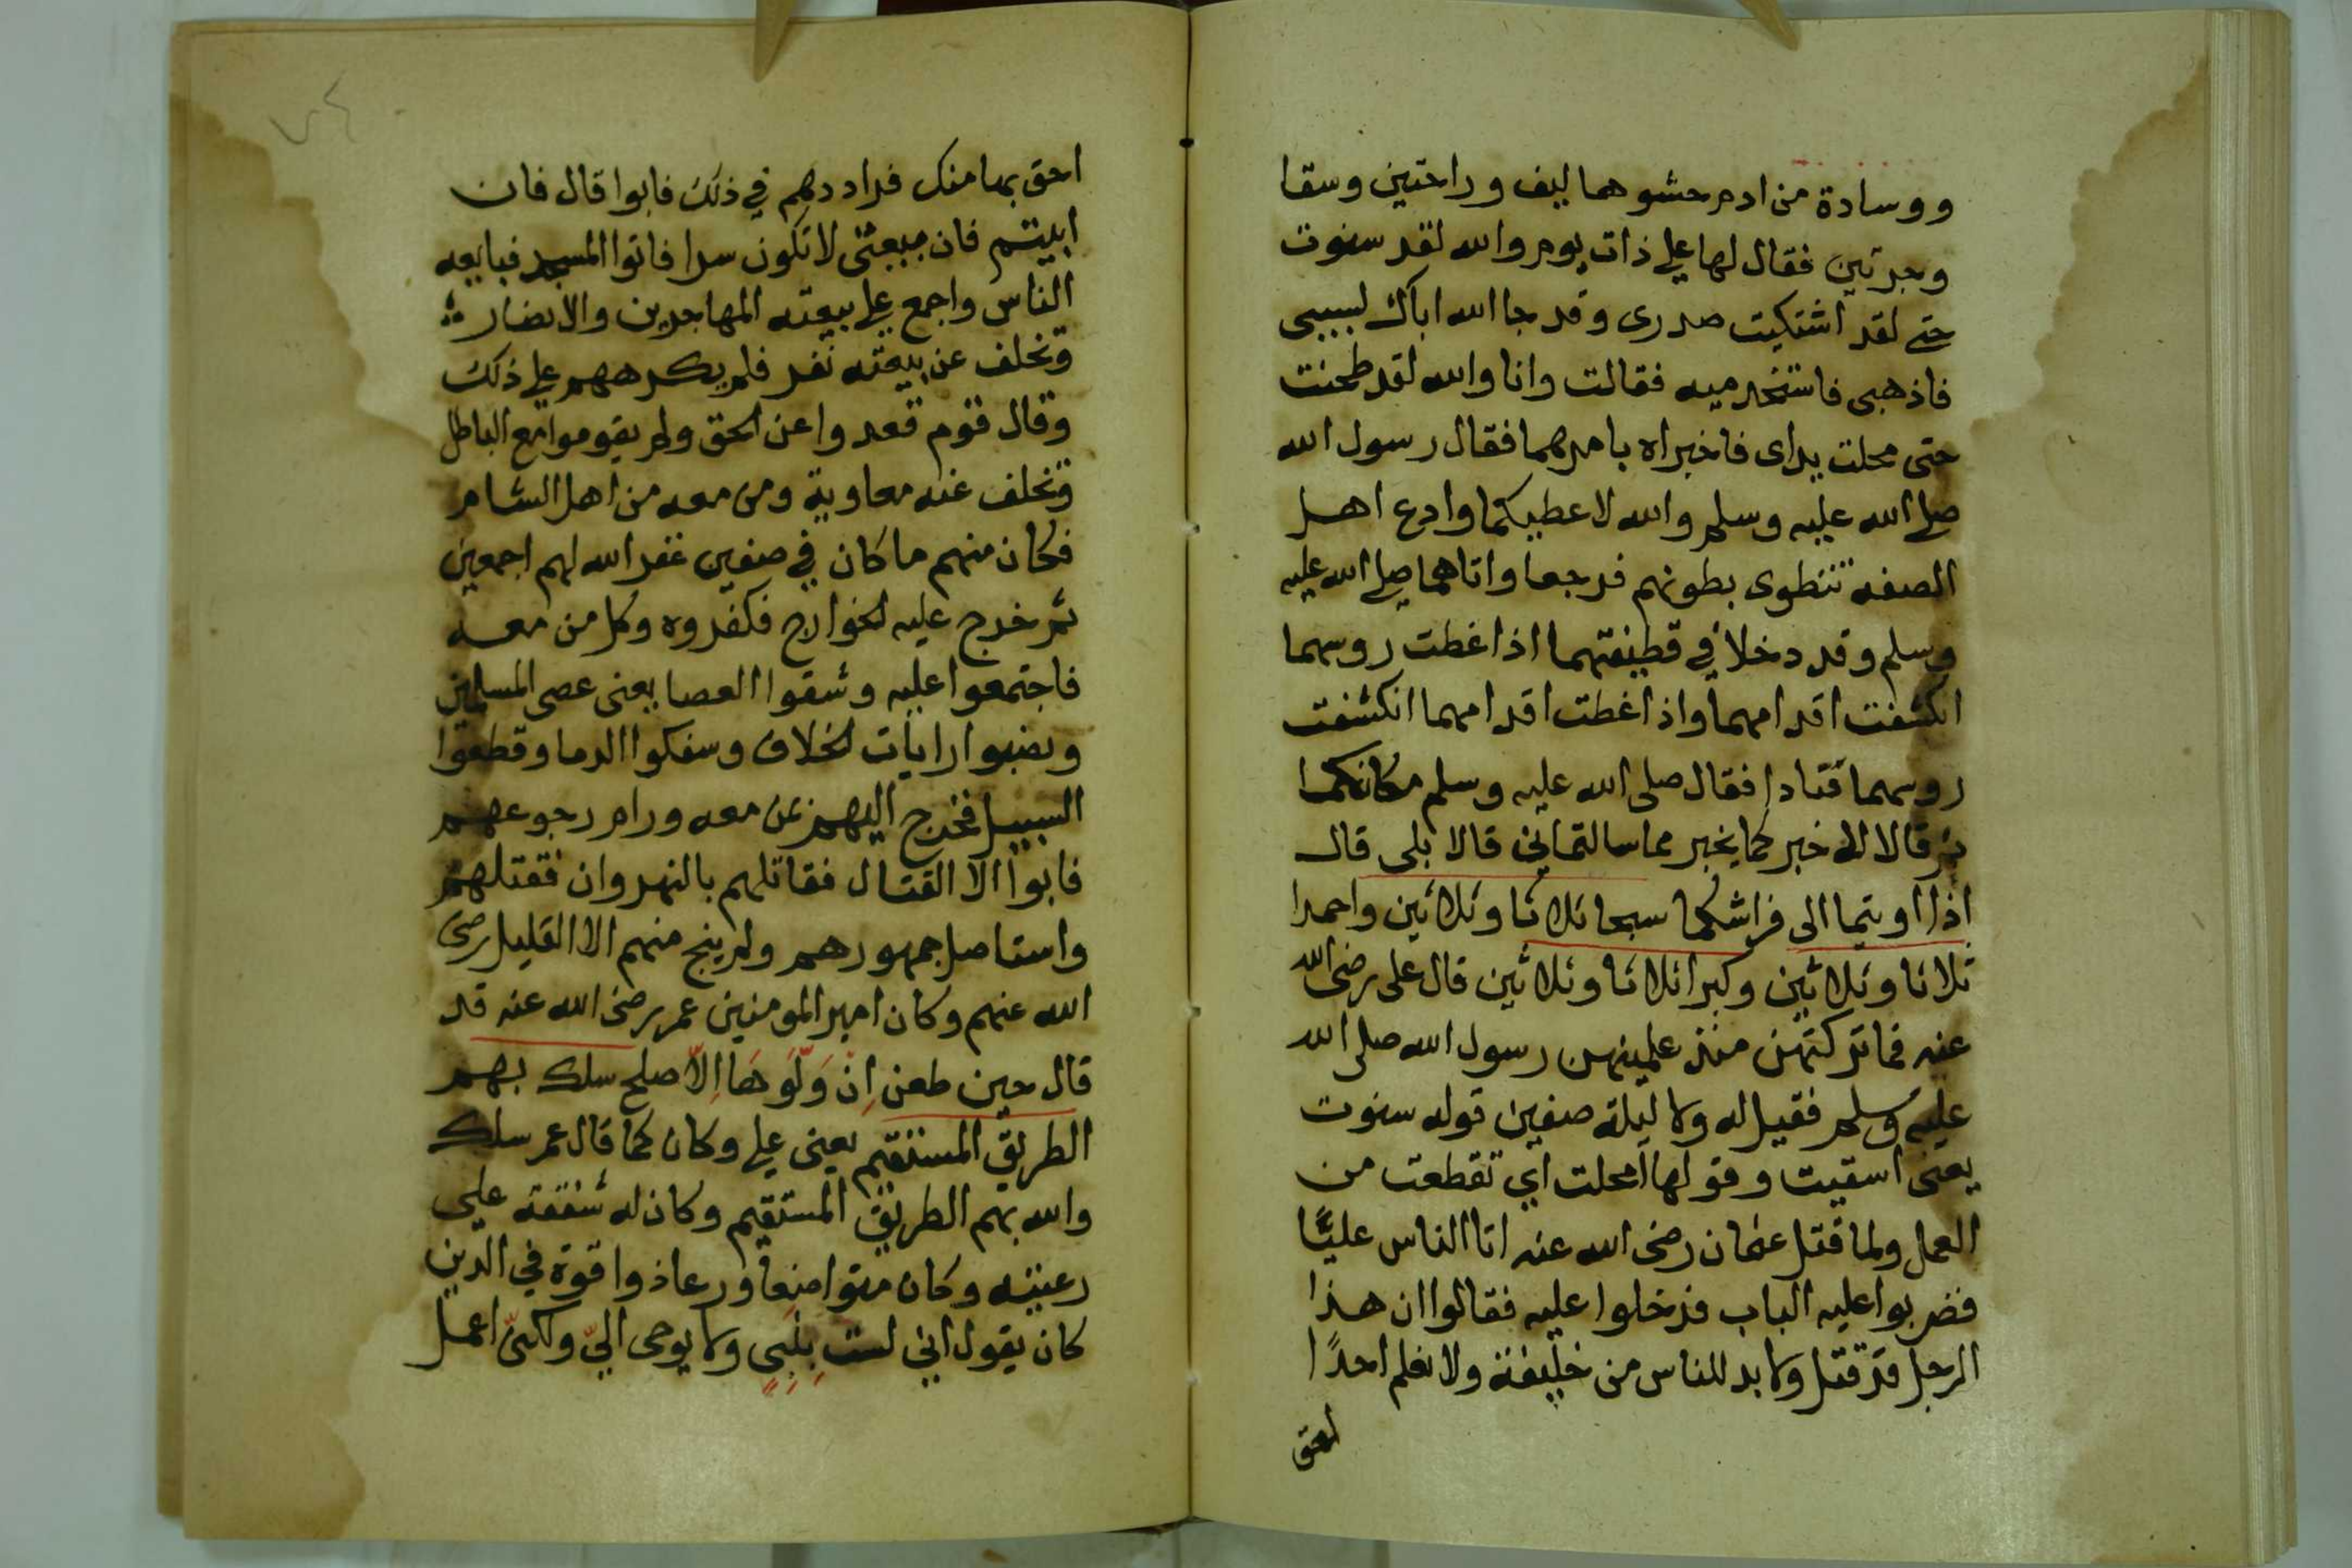 ووسادة من ادم حشوهما ليف وراحتين وسقا
وجرتين فقال لها علي ذات يوم والله لقد سنوت
حتى لقد اشتكيت صدرى وقد جا الله اباك لبسبى
فاذهبى فاستخدميه فقالت وانا والله لقد طحنت
حتى محلت يداى فاخبراه بامرهما فقال رسول الله
صلى الله عليه وسلم والله لا عطيكما وادع اهل
الصفه تتطوى بطونهم فرجعا واتاهما صلى الله عليه
وسلم وقد دخلا في قطيفتهما اذا غطت روسهما
انكشفت اقدامهما واذا غطت اقدامهما انكشفت
روسهما فتادا فقال صلى الله عليه وسلم مكانكما
ثم قالا الا خبركما بخير مما سالتماني قالا بلى قال
اذا اويتما الى فراشكما سبحا ثلاثا وثلاثين واحمدا
ثلاثا وثلاثين وكبرا ثلاثا وثلاثين قال على رضى الله
عنه فما تركتهن منذ علمينهن رسول الله صلى الله
عليه وسلم فقيل له ولا ليلة صفين قوله سنوت
يعنى اسقيت وقولها امحلت اي تقطعت من
العمل ولما قتل عثمان رضى الله عنه اتا الناس عليًّا
فضربوا عليه الباب فدخلوا عليه فقالوا ان هذا
الرجل قد قتل ولا بد للناس من خليفة ولا نعلم احدًا
احق
احق بها منك فراددهم في ذلك فابوا قال فان
ابيتم فان ببيعتى لا تكون سرا فاتوا المسجد فبايعه
الناس واجمع على بيعته المهاجرين والانصار
وتخلف عن بيعته نفر فلم يكرههم على ذلك
وقال قوم قعدوا عن الحق ولم يقوموا مع الباطل
وتخلف عنه معاوية ومن معه من اهل الشام
فكان منهم ما كان في صفين غفر الله لهم اجمعين
ثم خرج عليه الخوارج فكفروه وكل من معه
فاجتمعوا عليه وشقوا العصا يعنى عصى المسلمين
ونصبوا رايات الخلاف وسفكوا الدما وقطعوا
السبيل فخرج اليهم بمن معه ورام رجوعهم
فابوا الا القتال فقاتلهم بالنهروان فقتلهم
واستاصل جمهورهم ولم ينج منهم الا القليل رضى
الله عنهم وكان امير المومنين عمر رضى الله عنه قد
قال حين طعن اِنْ وَلَّوَهَا اِلاّ صلح سلك بهم
الطريق المستقيم يعنى على وكان كما قال عمر سلك
والله بهم الطريق المستقيم وكان له شفقة على
رعيته وكان متواضعا ورعا ذوا قوة في الدين
كان يقول اني لست بِنَبِيٍ ولا يوحى اليّ ولكنّى اعمل